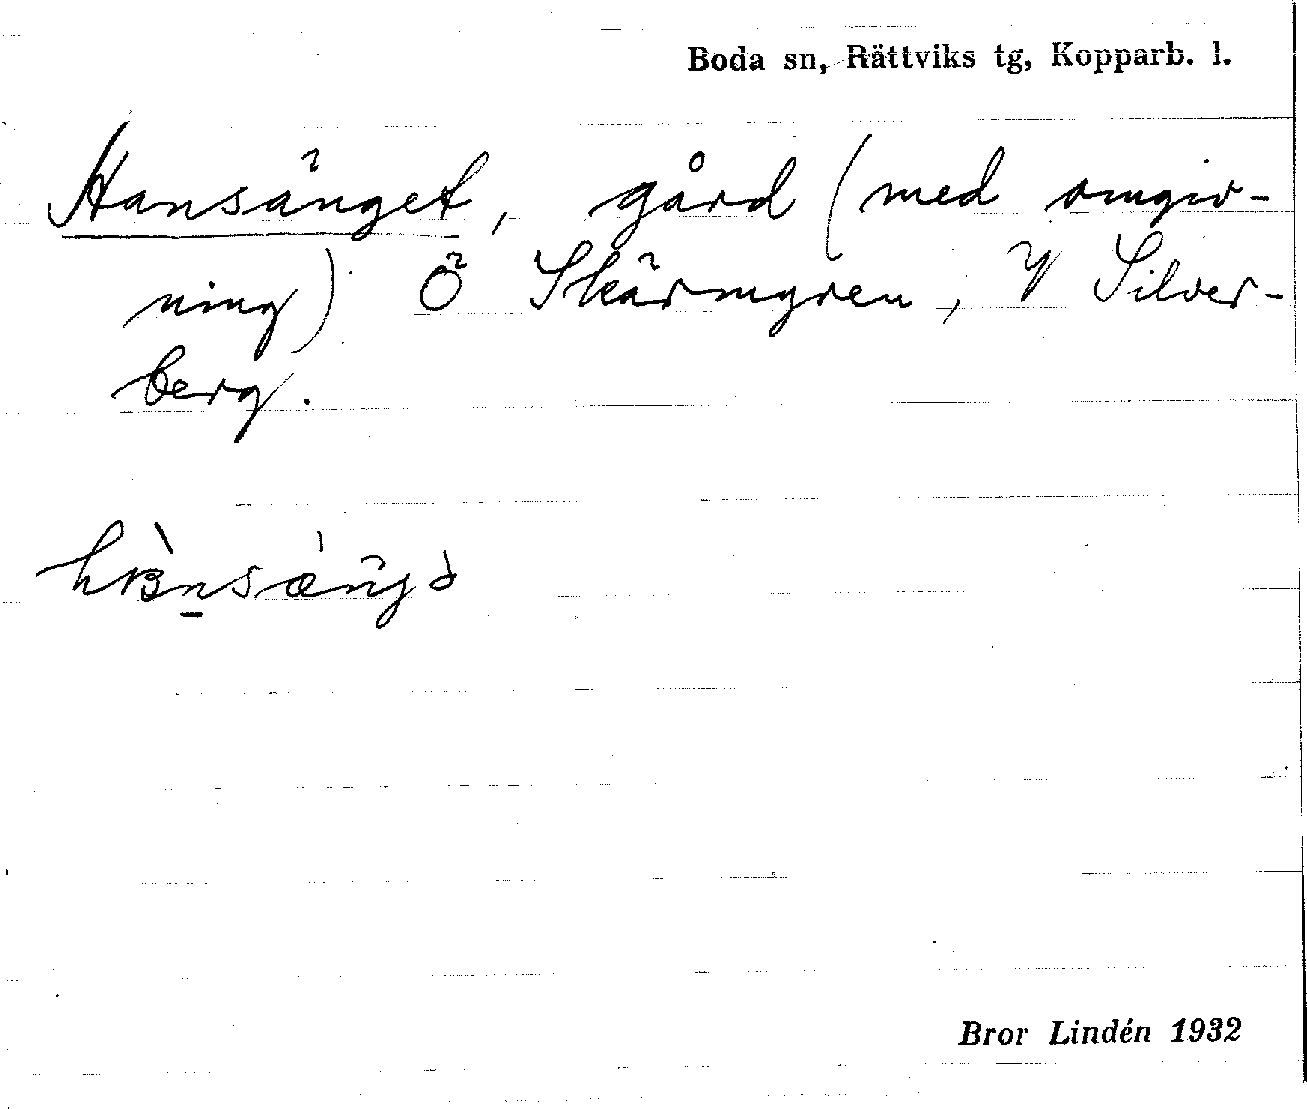 Boda sn, Rättviks tg, Kopparb. l.
Hansänget, gård (med omgiv-
ning) Ö Skärmyren, V Silver-
berg.
Bror Lindén 1932